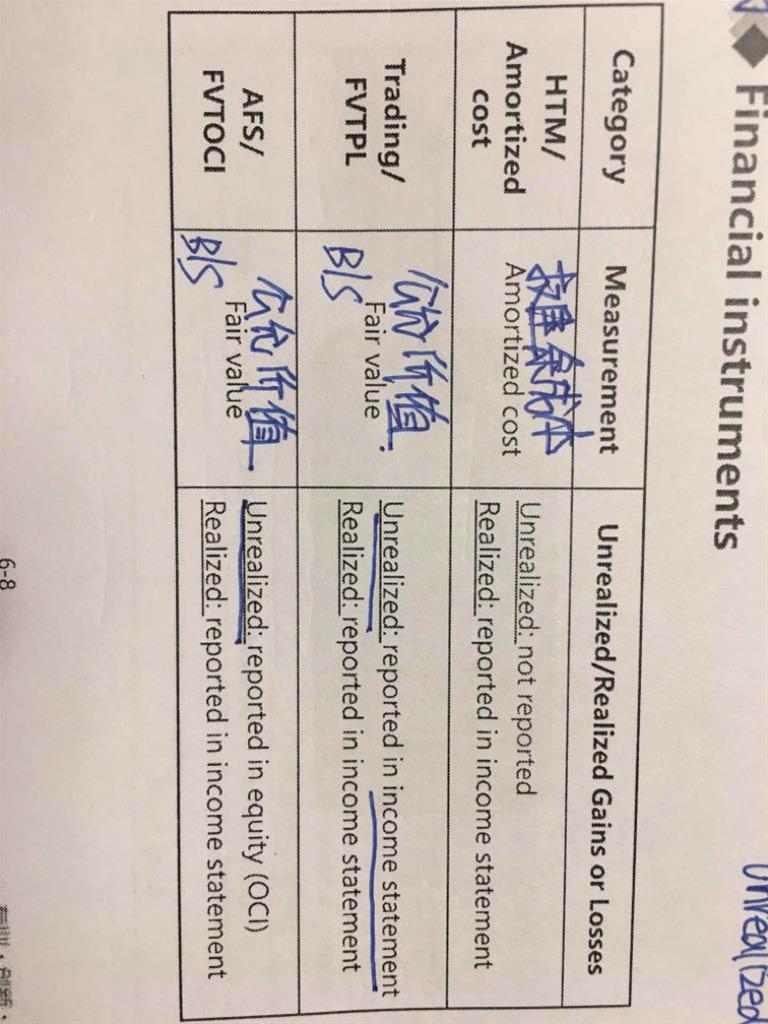 Financial instruments
unrealized
Category
Measurement
Unrealized/Realized Gains or Losses
HTM/
Amortized
cost
Amortized cost
Unrealized: not reported
Realized: reported in income statement
Trading/
FVTPL
公允价值.
Fair value
B/S
Unrealized: reported in income statement
Realized: reported in income statement
AFS/
FVTOCI
公允价值.
Fair value
B/S
Unrealized: reported in equity (OCI)
Realized: reported in income statement
6-8